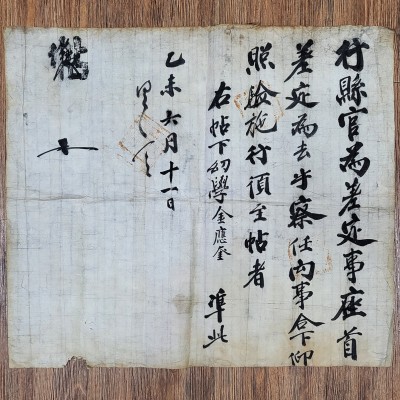 行縣官為差定事座首
差定為去乎察任內事合下仰
照驗施行須至帖者
右帖下幼學金應奎 準此
乙未六月十一日